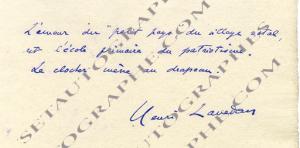 L'amour du "petit pays", du village natal,
est l'école primaire du patriotisme.
Le clocher mène au drapeau.
Henri Lavedan
SETAUTOGRAPHE.COM